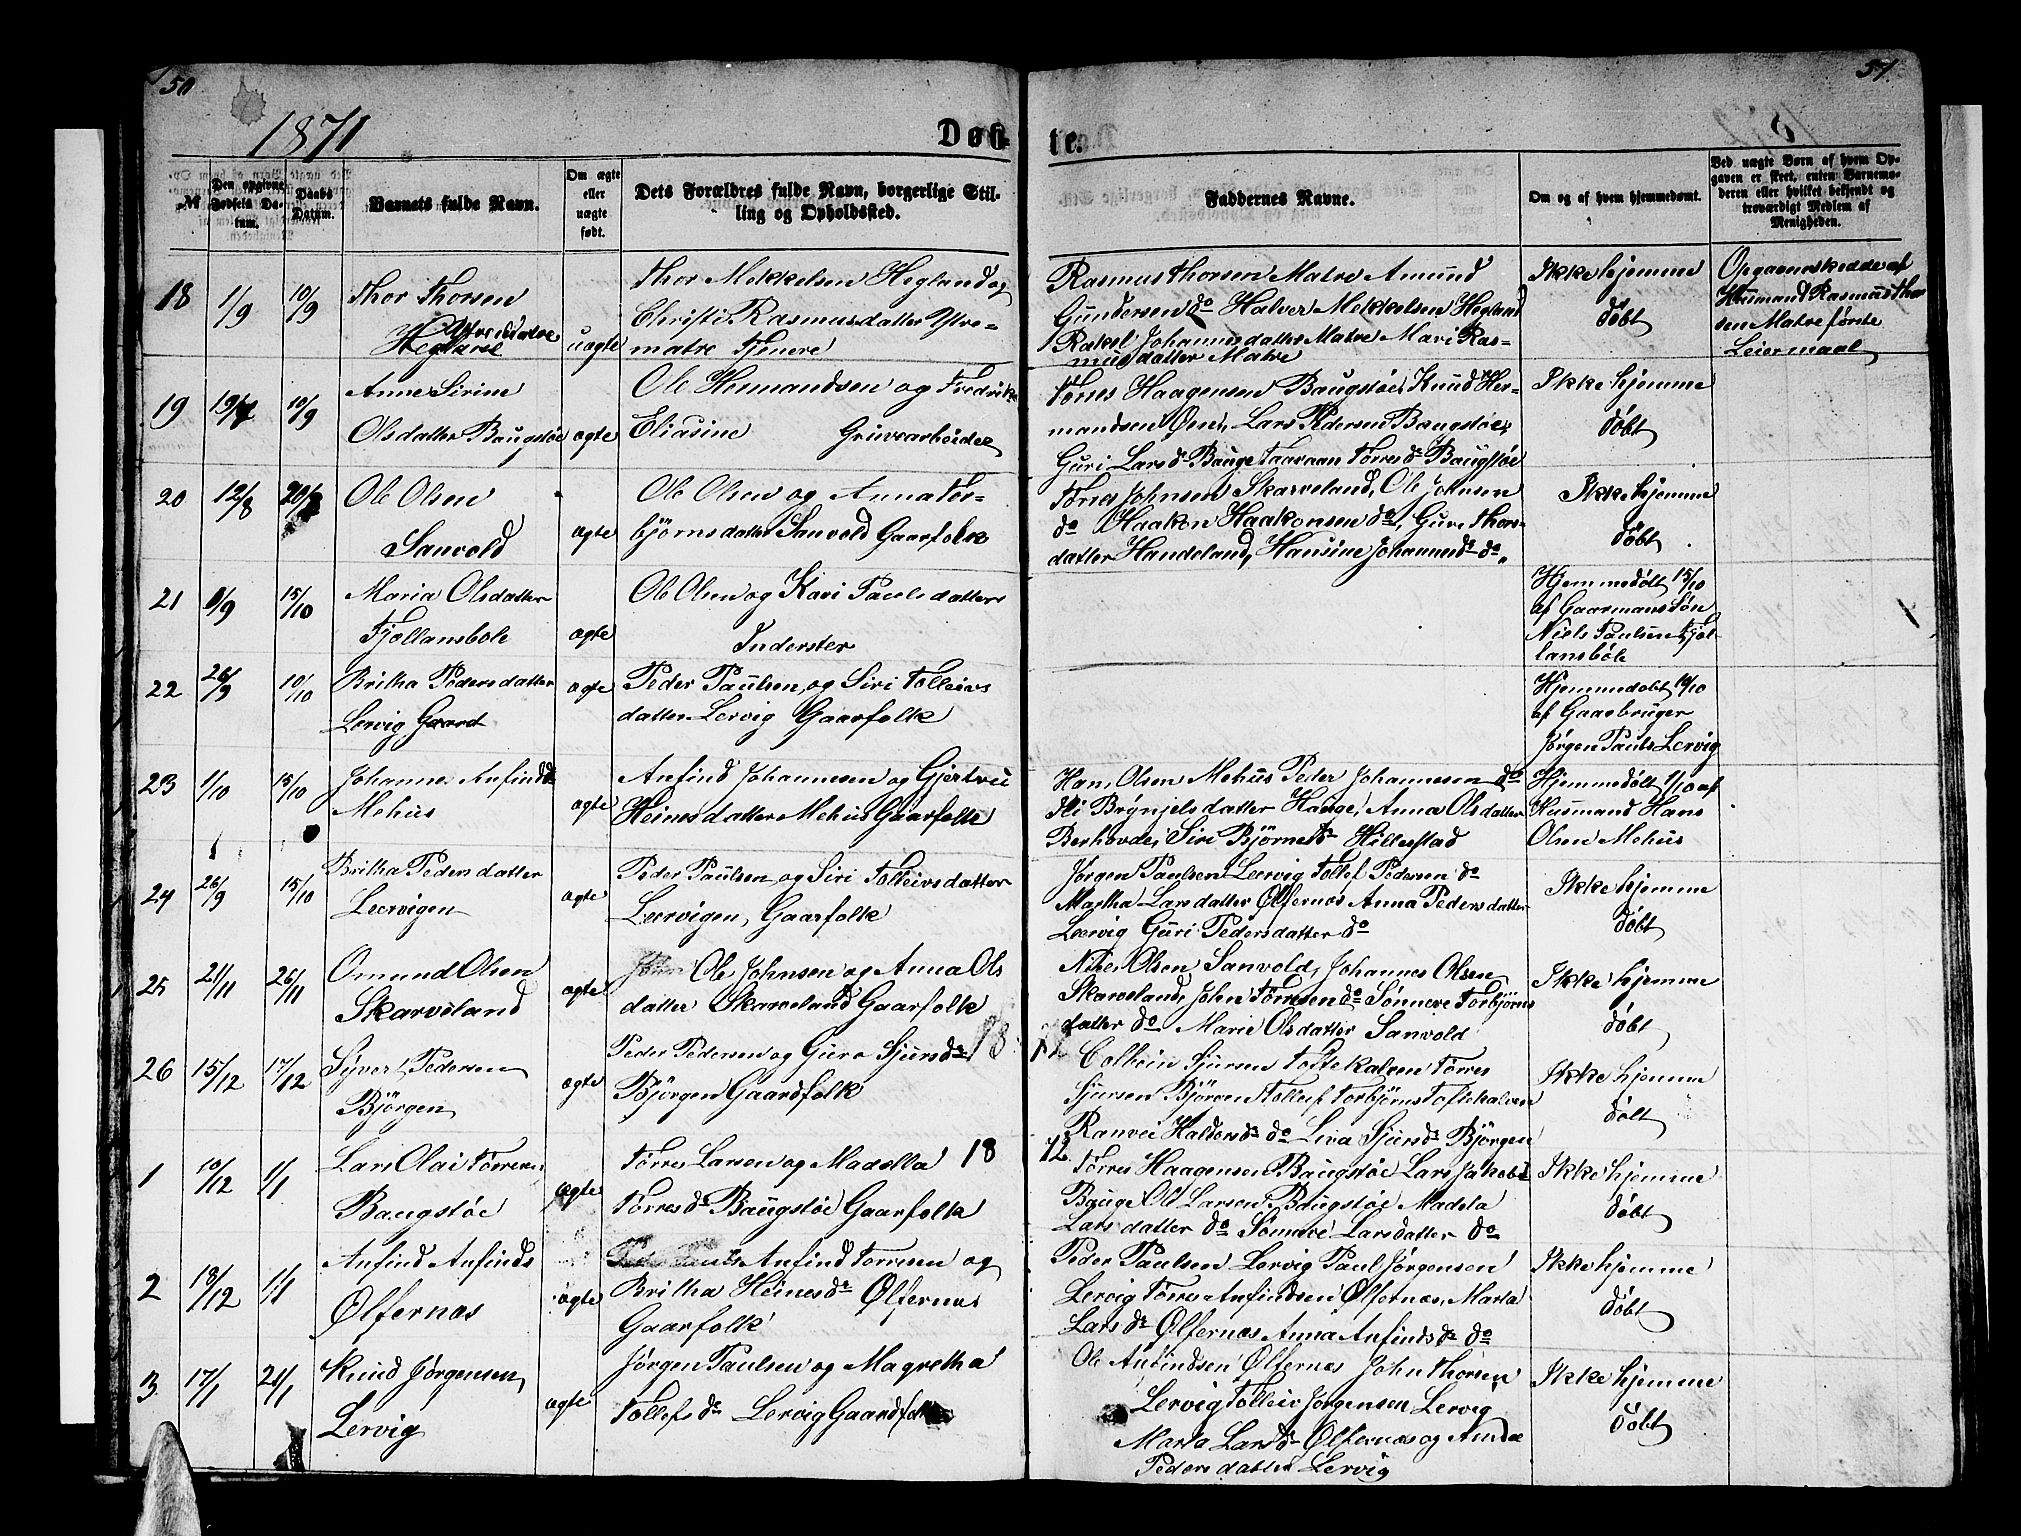 50
51
1871
Døb-
te.
№
Den opgivne
Fødsels Da-
tum.
Daabs
Datum.
Barnets fulde Navn.
Om ægte
eller
uægte
født.
Dets Forældres fulde Navn, borgerlige Stil-
ling og Opholdssted.
Faddernes Navne.
Om og af hvem hjemmedømt.
Ved uægte Børn af hvem Op-
gaven er skeet, enten Barnemo-
deren eller hvilket bekjendt og
troværdigt Medlem af
Menigheden.
18 1/9 10/9
Thor Thorsen
Hegland
uægte
Thor Mekkelsen Hegland og
Christi Rasmusdatter Ytre-
matre Tjenere
Rasmus Thorsen Matre Amund
Gundersen do Halver Mekkelsen Hegland
Rakel Johannesdatter Matre Mari Ras-
musdatter Matre
Ikke hjemme
døbt
Opgaven skedde af
Huusmand Rasmus Thor
sen Matre første
Leiermaal
19 10/9
Anne Sirine
Olsdatter Baugstøe
ægte
Ole Hermandsen og Fredrikke
Eliasine Gruvearbeider
Tørres Haagensen Baugstøe, Knud Her-
mandsen Øen, Lars Pedersen Baugstøe,
Guri Larsdr Bauge Taaraan Tørresdr Baugstøe
Ikke hjemme
døbt
20 12/8
Ole Olsen
Sanvold
ægte
Ole Olsen og Anna Tor-
bjørnsdatter Sanvold Gaarfolk
Tørres Johnsen Skarveland, Ole Johnsen
do Haakon Haakonsen do, Guri Thors-
datter Handeland, Hansine Johannesdr do
Ikke hjemme
døbt
21 8/9 15/10
Maria Olsdatter
Fjellansbøle
ægte
Ole Olsen og Kari Paulsdatter
Inderster
Hjemmedøbt 15/10
af Gaarmans Søn
Niels Paulsen Fjel
lansbøle
22 26/9 10/10
Britha Pedersdatter
Lervig Gaard
ægte
Peder Paulsen og Siri Tolleivs
datter Lervig Gaarfolk
Hjemmedøbt 10/10
af Gaarbruger
Jørgen Pauls Lervig
23 1/10 15/10
Johanne Anfindsdr
Mehus
ægte
Anfind Johannesen og Gjertrui
Heinesdatter Mehus Gaarfolk
Hans Olsen Mehus Peder Johannesen do
Eli Brønjelsdatter Hauge, Anna Olsdatter
Berhovde, Siri Bjørnesdr Hillestad
Hjemmedøbt 1/10 af
Husmand Hans
Olsen Mehus
24 26/9 15/10
Britha Pedersdatter
Leervigen
ægte
Peder Paulsen og Siri Tolleivsdatter
Leervigen, Gaarfolk
Jørgen Paulsen Lervig Tollef Pedersen do
Martha Larsdatter Ølfernæs Anna Pedersdatter
Leervig Guri Pedersdatter do
Ikke hjemme
døbt
25 21/11 26/11
Omund Olsen
Skarveland
ægte
Ole Johnsen og Anna Ols
datter Skarveland Gaarfolk
Niels Olsen Sanvold, Johannes Olsen
Skarveland, John Tørresen do Sønneve Torbjørns
datter do Marie Olsdatter Sanvold
Ikke hjemme
døbt
18 72
26 15/12 17/12
Syvert Pedersen
Bjørgen
ægte
Peder Pedersen og Guro Sjursdr
Bjørgen Gaardfolk
Colbein Sjursen Toftekalven Tørres
Sjursen Bjørgen Tollef Torbjørns Toftekalven
Ranvei Haldorsdr do Liva Sjursdr Bjørgen
Ikke hjemme
døbt
18 72
1 10/12 1/1
Lars Olai Tørresen
Baugstøe
ægte
Tørres Larsen og Madella
Tørresdr Baugstøe Gaarfolk
Tørres Haagensen Baugstøe Lars Jakobs
Bauge Ole Larsen Baugstøe Madela
Larsdatter do Sønneve Larsdatter do
Ikke hjemme
døbt
2 18/12 1/1
Anfind Anfinds
Ølfernæs
ægte
Anfind Tørresen og
Britha Heinesdr Ølfernæs
Gaarfolk
Peder Paulsen Lervig Paul Jørgensen
Lervig Tørres Anfindsen Ølfernæs, Marta
Larsdr Ølfernæs Anna Anfindsdr do
Ikke hjemme
døbt
3 17/1 21/1
Knud Jørgensen
Lervig
ægte
Jørgen Paulsen og Magretha
Tollefsdr Lervig Gaardfolk
Ole Anfindsen Ølfernæs John Thorsen
Lervig Tolleiv Jørgensen Lervig
Marta Larsdr Ølfernæs og Anna
Pedersdatter Lervig
Ikke hjemme
døbt